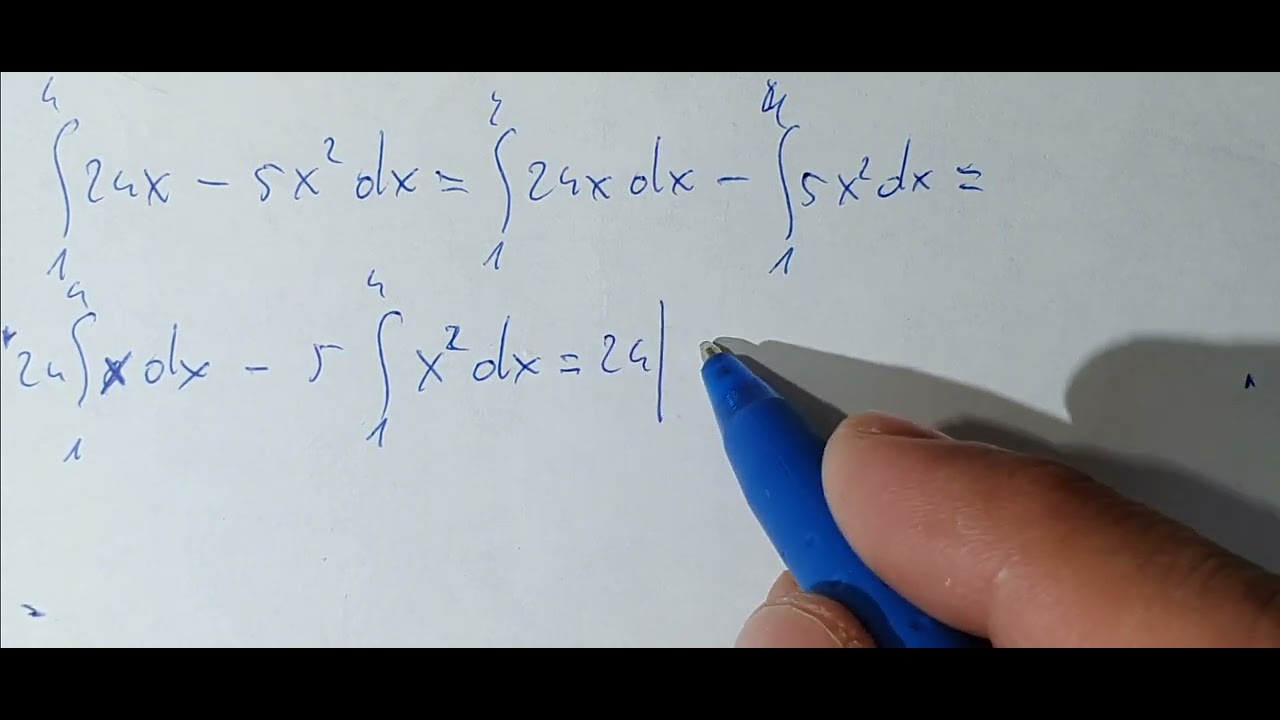 ∫₁⁴ 24x − 5x² dx = ∫₁⁴ 24x dx − ∫₁⁴ 5x² dx =
24 ∫₁⁴ x dx − 5 ∫₁⁴ x² dx = 24 |